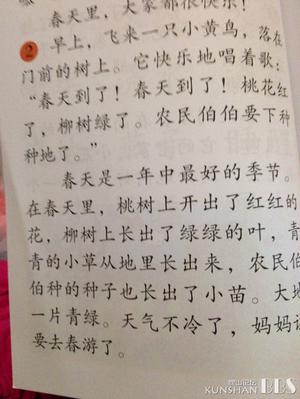 春天里，大家都很快乐！
2
早上，飞来一只小黄鸟，落在
门前的树上。它快乐地唱着歌：
“春天到了！春天到了！桃花红
了，柳树绿了。农民伯伯要下种
种地了。”
春天是一年中最好的季节。
在春天里，桃树上开出了红红的
花，柳树上长出了绿绿的叶，青
青的小草从地里长出来，农民伯
伯种的种子也长出了小苗。大地
一片青绿。天气不冷了，妈妈说
要去春游了。
昆山论坛
KUNSHAN BBS